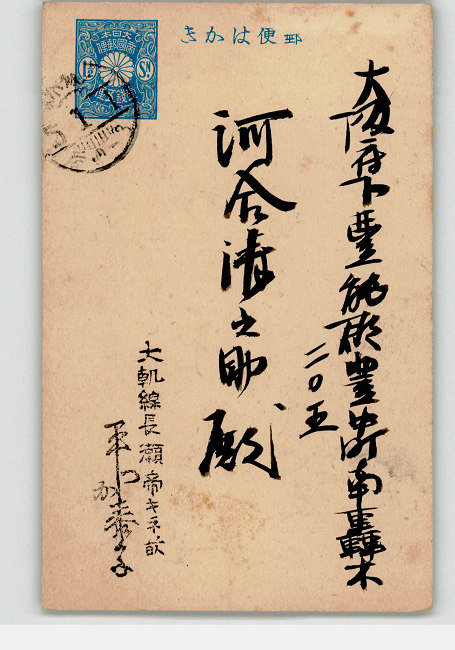 郵便はかき
大日本
帝國郵便
1½ Sn
大阪府下豊能郡豊中町南轟木
二〇五
河合清之助殿
大軌線長瀬帝キネ前